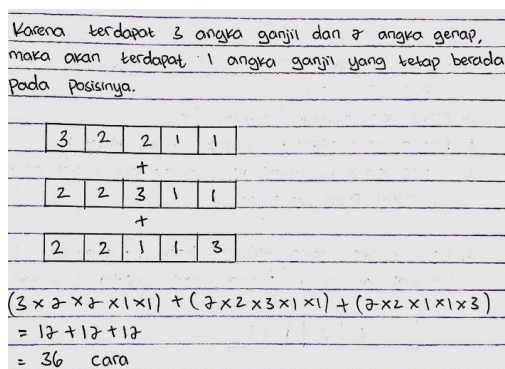 Karena terdapat 3 angka ganjil dan 2 angka genap,
maka akan terdapat 1 angka ganjil yang tetap berada
pada posisinya.
3 2 2 1 1
+
2 2 3 1 1
+
2 2 1 1 3
(3 x 2 x 2 x 1 x 1) + (2 x 2 x 3 x 1 x 1) + (2 x 2 x 1 x 1 x 3)
= 12 + 12 + 12
= 36 cara